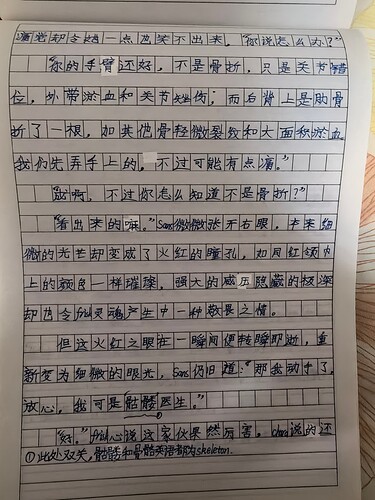 痛苦却令她一点也笑不出来，“你说怎么办？”
“你的手臂还好，不是骨折，只是关节错
位，外带淤血和关节挫伤；而右背上是肋骨
折了一根，加其他骨轻微裂纹和大面积淤血。
我们先弄手上的，不过可能有点痛。”
“欸啊，不过你怎么知道不是骨折？”
“看出来的嘛。”Sans微微张开右眼，本来细
微的光芒却变成了火红的瞳孔，如同红领巾
上的颜色一样璀璨，强大的威压隐藏的极深
却也令frisk灵魂产生中一种敬畏之情。
但这火红之眼在一瞬间便转瞬即逝，重
新变为细微的眼光，Sans仍旧道：“那我动手了，
放心，我可是骷髅医生。”
“好。”frisk心说这家伙果然厉害，chara说的还
①此处双关，骷髅和骨骼英语都为skeleton.